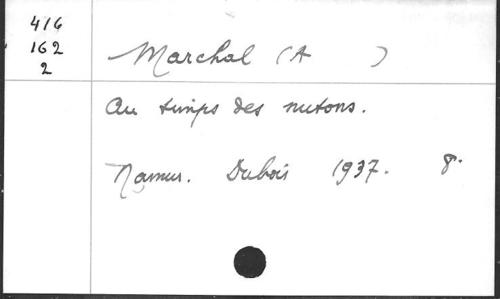 416
162
2
Marchal (A )
Au temps des nutons.
Namur. Dubois 1937. 8°